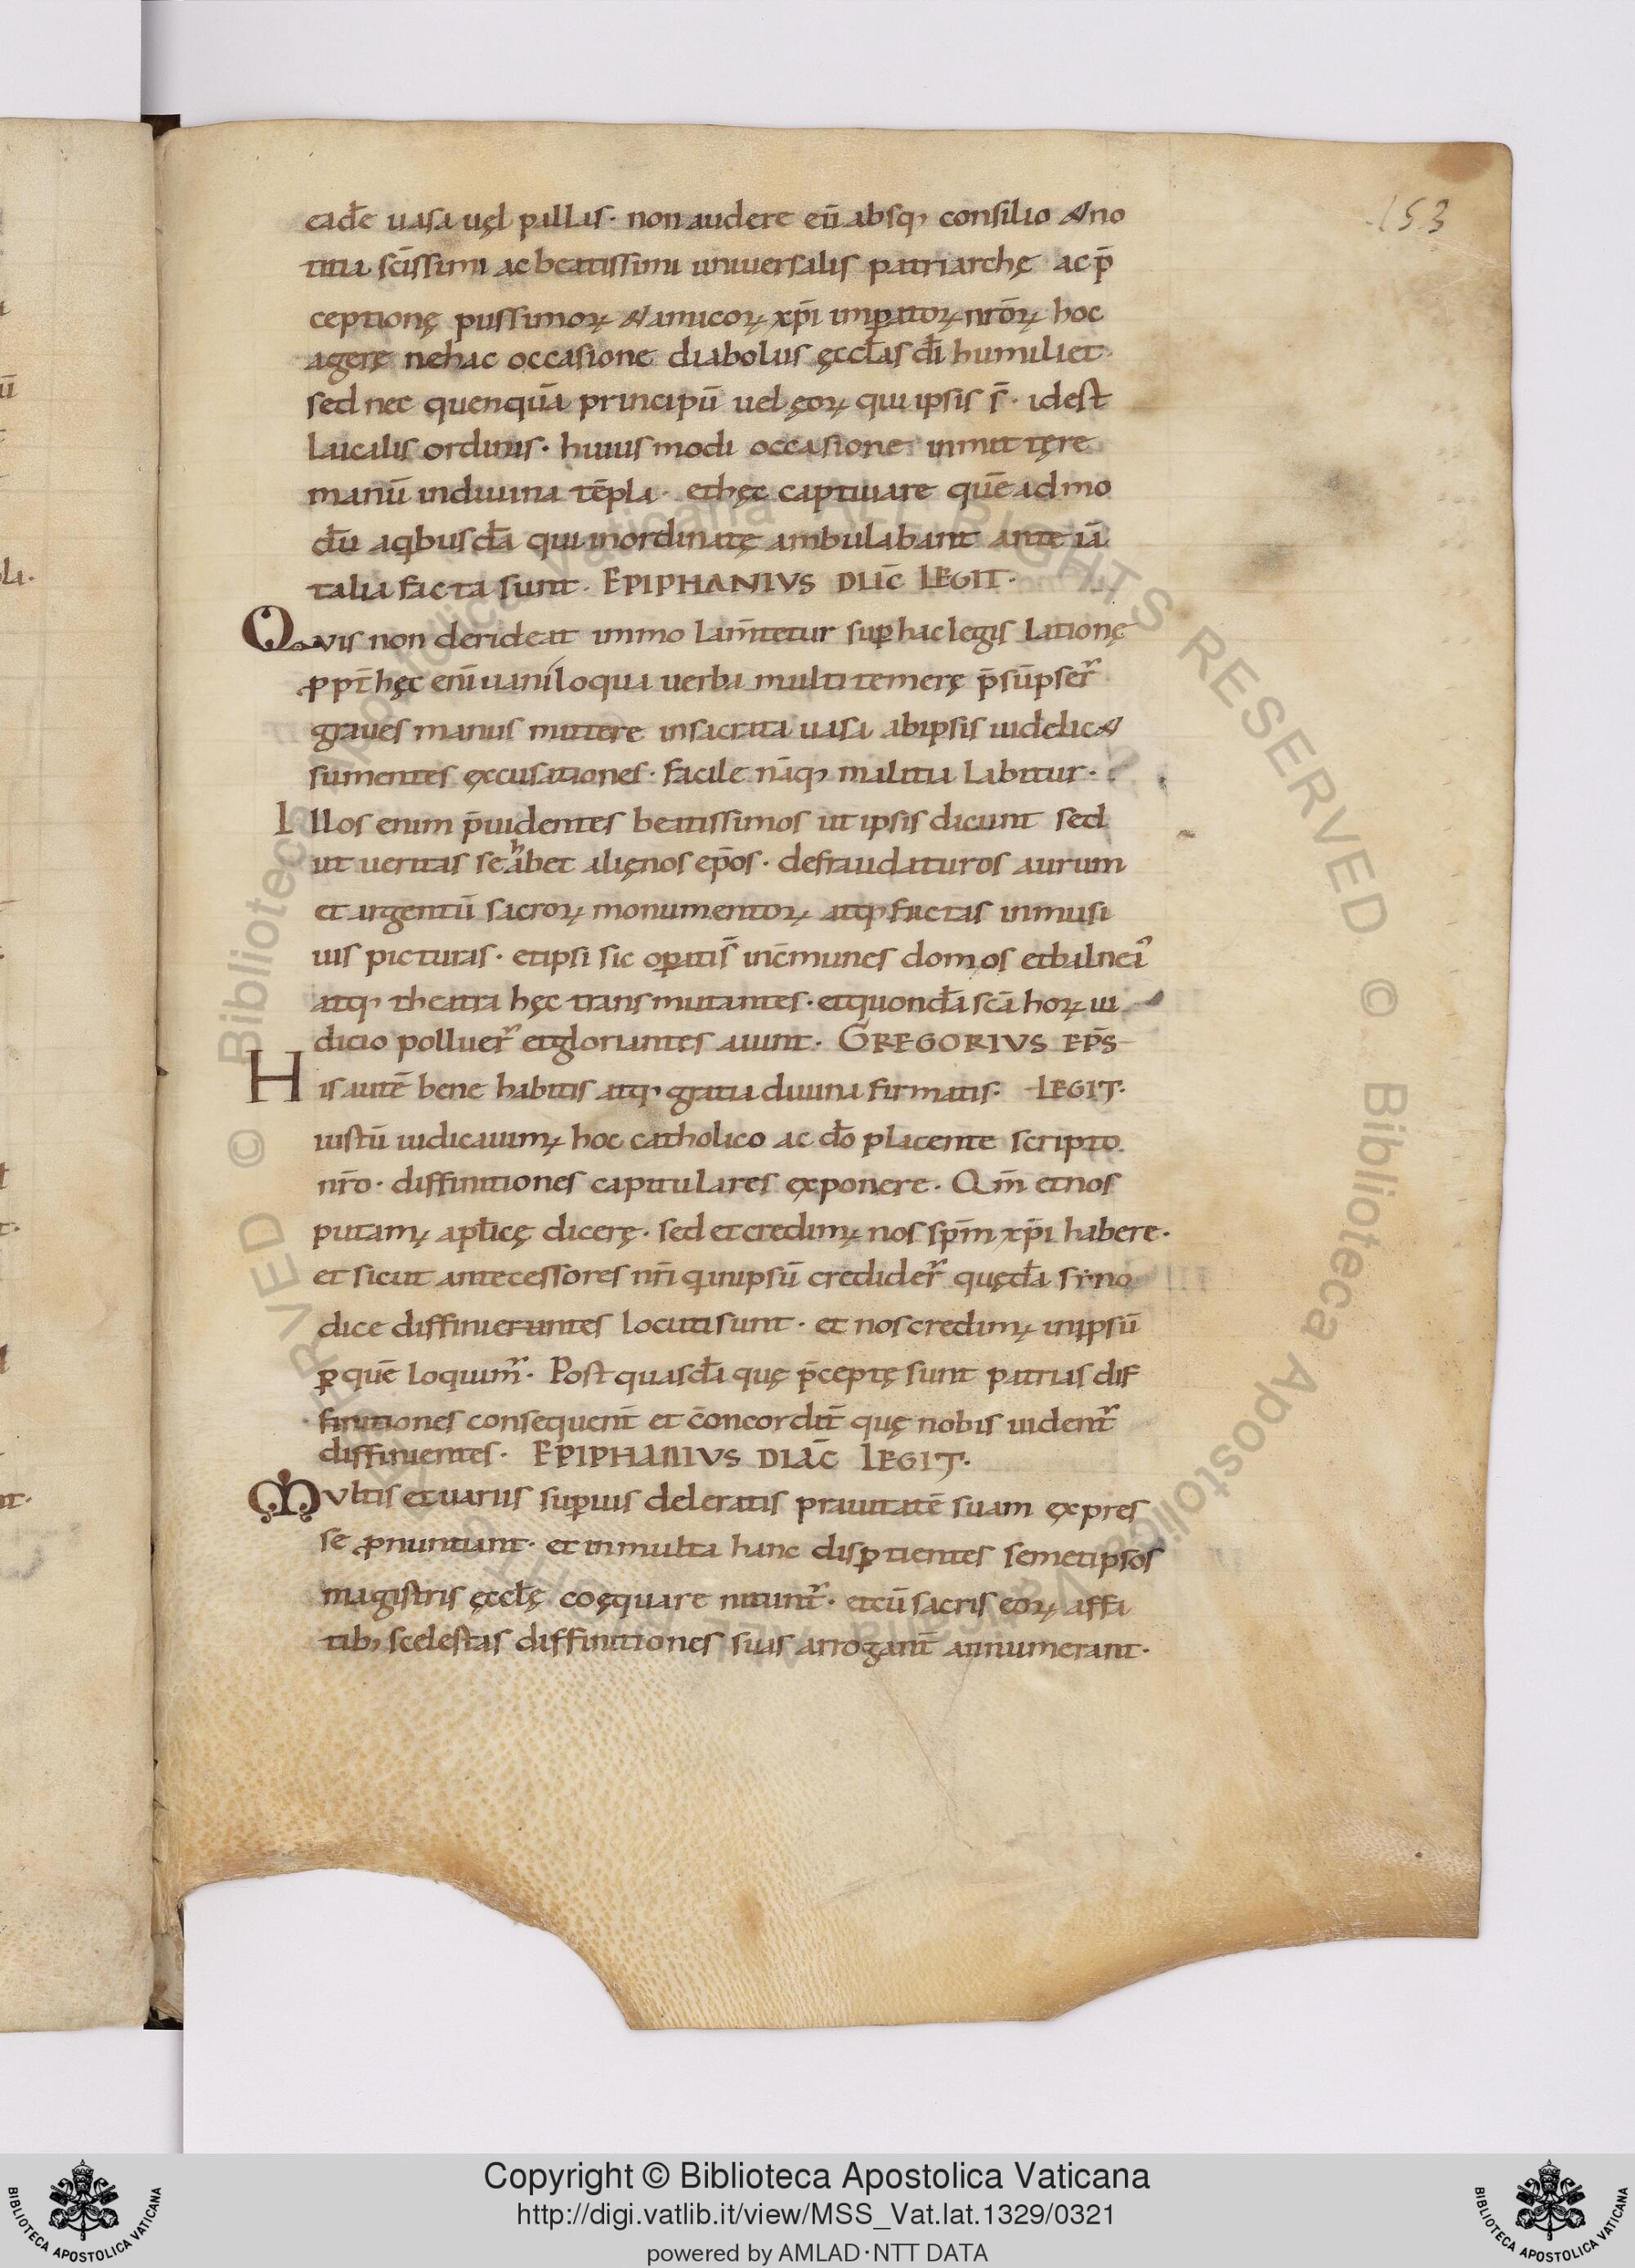 153
eadē uasa uęl pallas· non audere eū absq; consilio & no
titia sc̄issimi ac beatissimi uniuersalis patriarchę ac p̄
ceptionę piissimoꝝ & amicoꝝ xp̄i imꝑatoꝝ nr̄oꝝ hoc
agerę ne hac occasione diabolus ęccl̄as dī humiliet·
sed nec quenquā principū uel ęoꝝ qui ipsis s̄· idest
laicalis ordinis· huius modi occasione inmittęre
manū in diuina tēpla· et hęc captiuare quēadmo
dū a qibusdā qui inordinatę ambulabant ante iā
talia facta sunt· EPIPHANIVS DIAC̄ LEGIT·
Qvis non derideat immo lam̄tetur suꝑ hac legis lationę
ꝓpt̄ hęc enī uaniloqua uerba multi temerę p̄sūpser̄
graues manus mittere in sacrata uasa ab ipsis uidelic&
sumentes ęxcusationes· facile nāq; malitia labitur·
Illos enim p̄uidentes beatissimos ut ipsis dicunt sed
ut ueritas se hābet alięnos ep̄os· defraudaturos aurum
et argentū sacroꝝ monumentoꝝ atq; factas in musi
uis picturas· et ipsi sic oꝑatis̄ in c̄munes domos et balnea
atq; theatra hęc transmutantes· et quondā sc̄a hoꝝ iu
dicio polluer̄ et gloriantes aiunt· GREGORIVS EP̄S
His autē bene habitis atq; gratia diuina firmatis· LEGIT·
iustū iudicauimꝰ hoc catholico ac dō placente scripto
nr̄o· diffinitiones capitulares ęxponere· Qm̄ et nos
putamꝰ apl̄icę dicerę· sed et credimꝰ nos sp̄m xp̄i habere·
et sicut antecessores nr̄i q in ipsū credider̄ quędā syno
dice diffinieruntes locuti sunt· et nos credimꝰ in ipsū
ꝑ quē loquim̄· Post quasdā quę p̄ceptę sunt patrias dif
finitiones consequent̄ et c̄oncordit̄ quę nobis uident̄
diffinientes· EPIPHANIVS DIAC̄ LEGIT·
Mvltis et uariis suꝑuis deleratis prauitatē suam ęxpres
se ꝓnuntiant· et in multa hanc disꝑtientes semetipsos
magistris ęccl̄ę coęquare nitunt̄· et cū sacris eoꝝ affa
tib; scelestas diffinitiones suas arrogant̄ annumerant·
Copyright © Biblioteca Apostolica Vaticana
http://digi.vatlib.it/view/MSS_Vat.lat.1329/0321
powered by AMLAD·NTT DATA
BIBLIOTECA APOSTOLICA VATICANA
BIBLIOTECA APOSTOLICA VATICANA